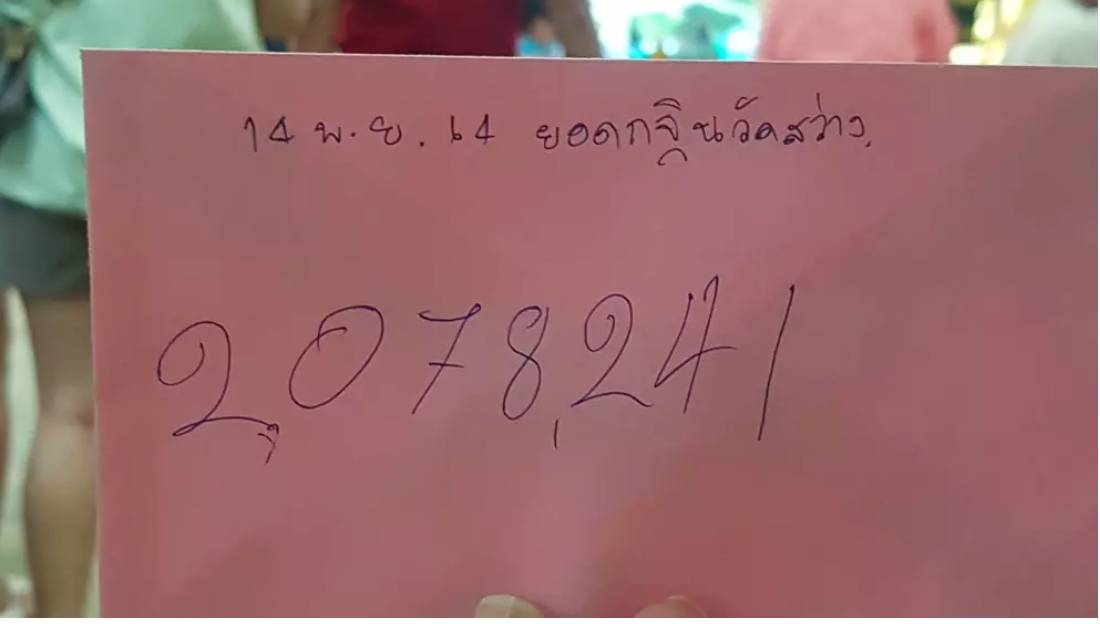 14 พ.ย. 64 ยอดกฐินวัดสว่าง
2,078,241